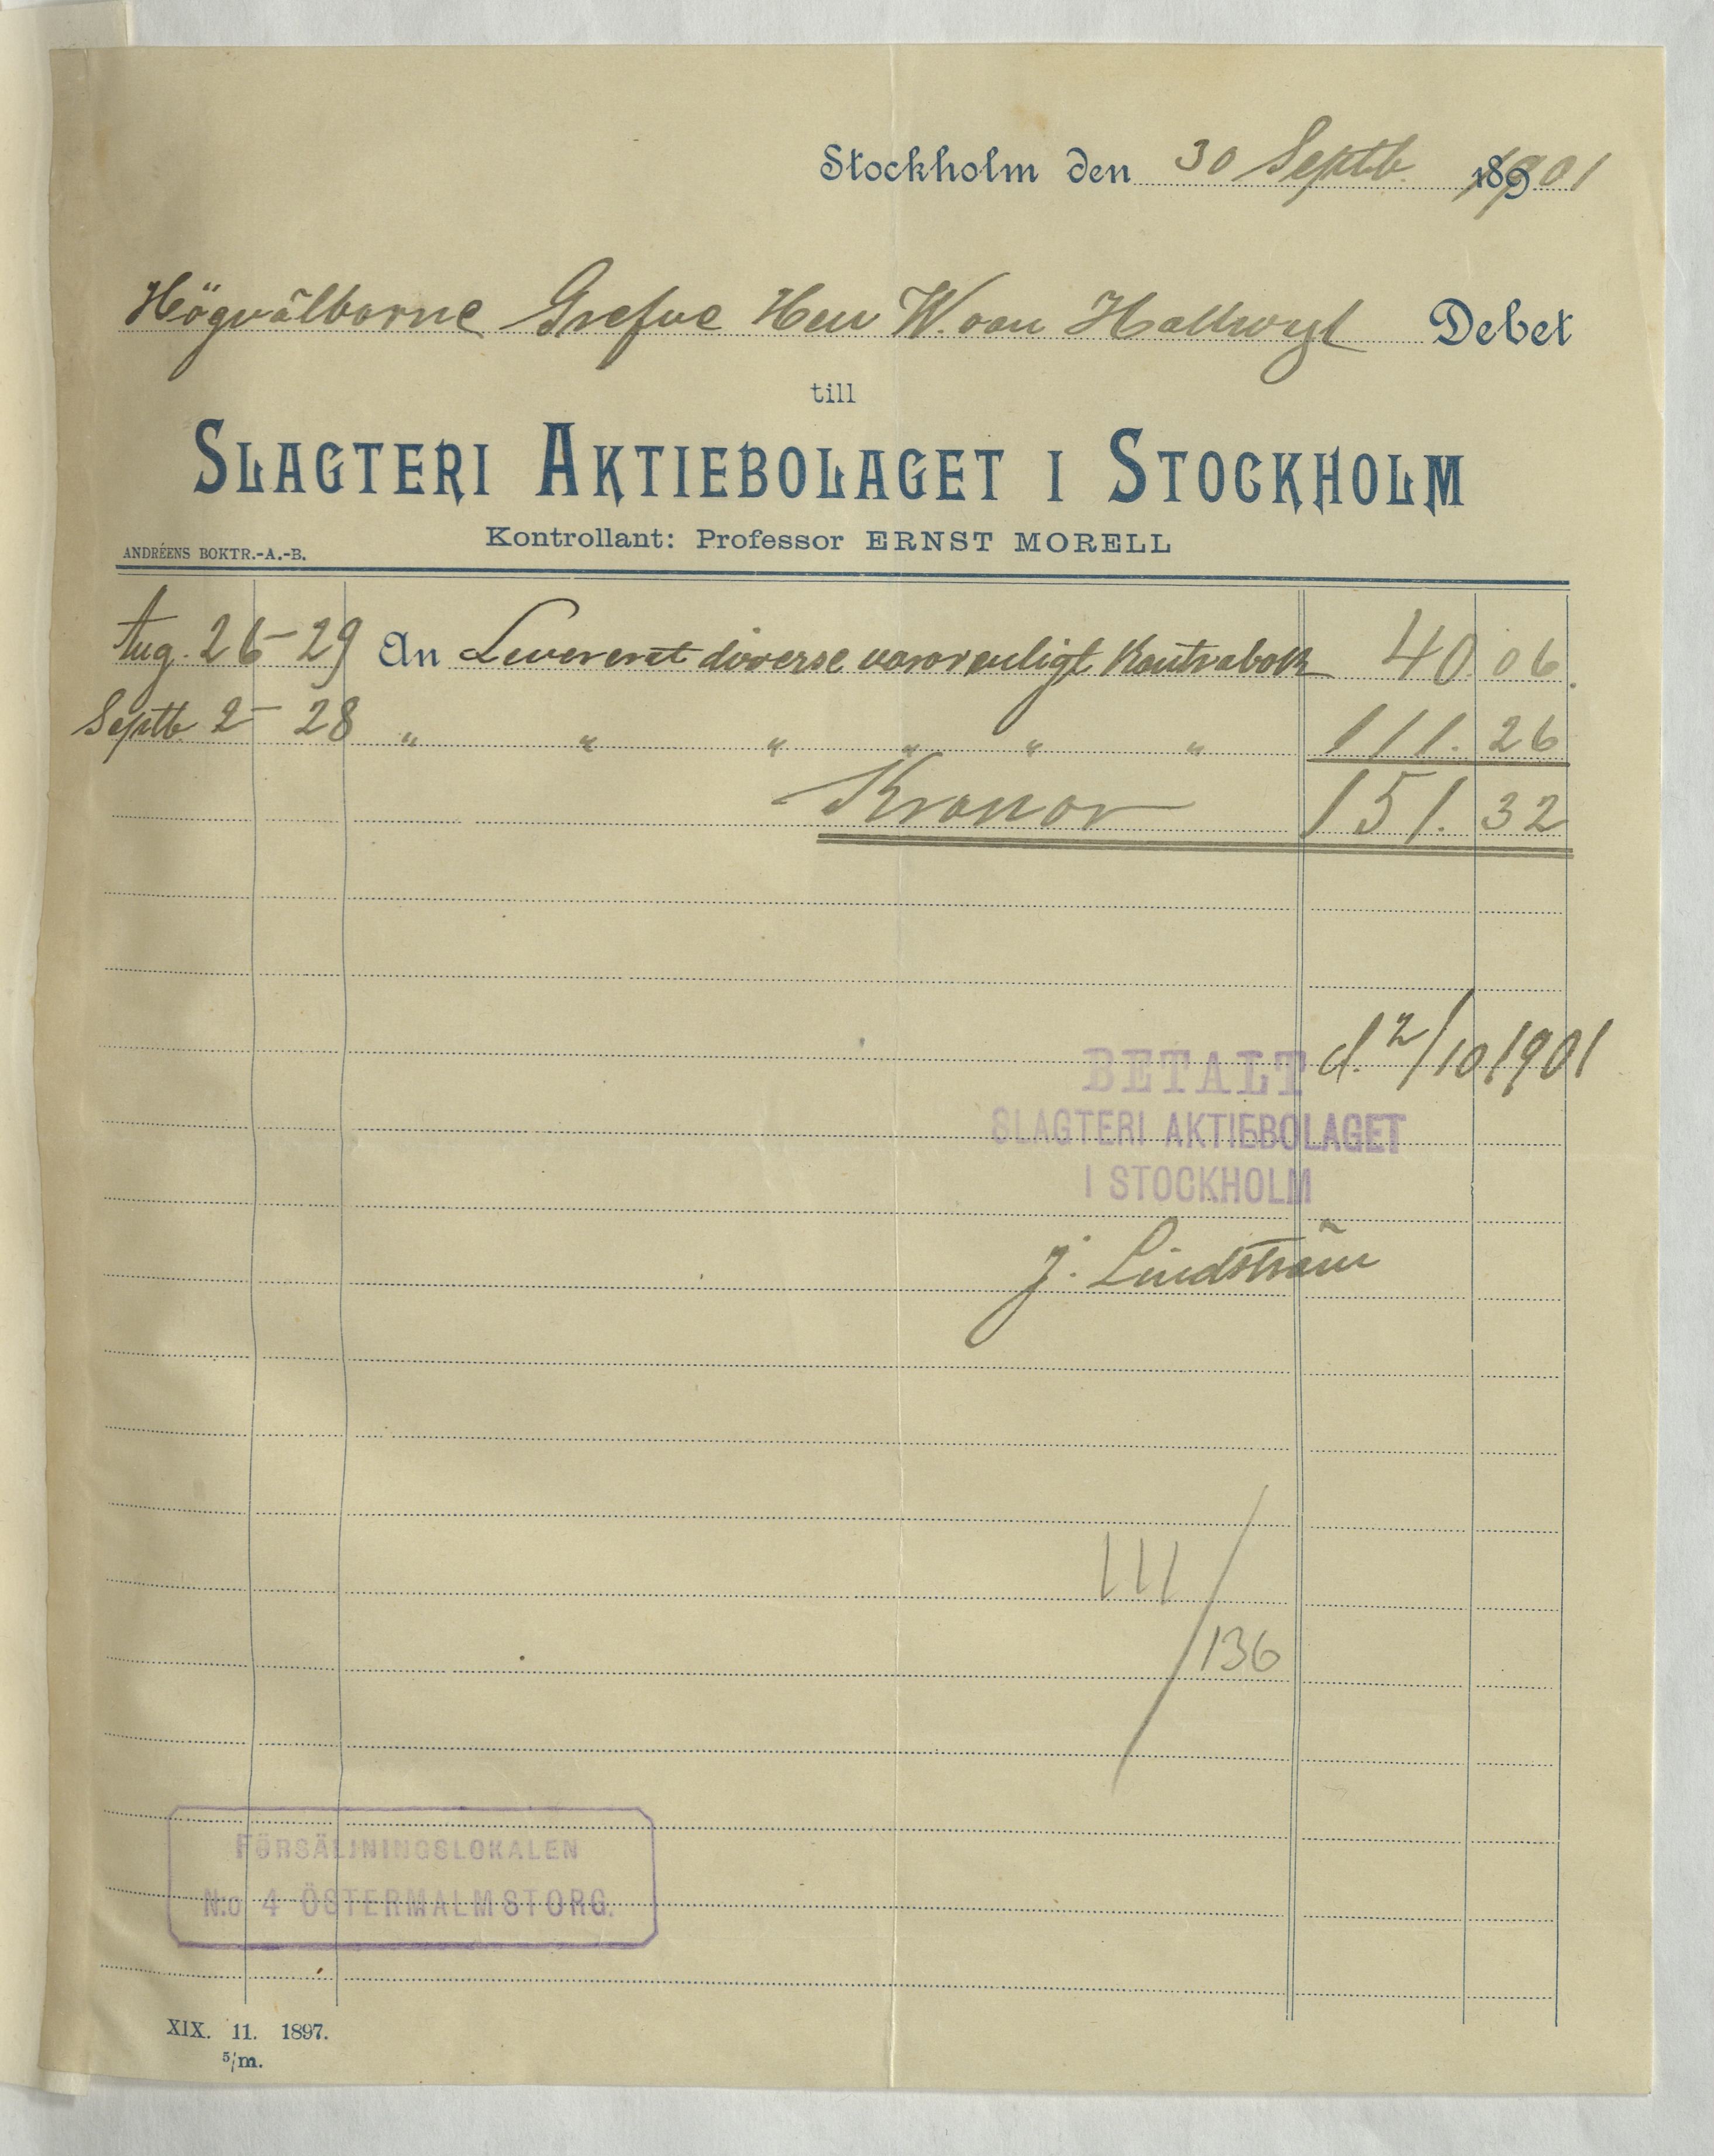 Stockholm den 30 Septb. 1901
Högvälborne Grefve Herr W. van Hallwyl Debet
till
SLAGTERI AKTIEBOLAGET I STOCKHOLM
Kontrollant: Professor ERNST MORELL
ANDRÉENS BOKTR.-A.-B.
Aug. 26-29 An Levererat diverse varor enligt Kontrabok 40. 06.
Septb. 2-28 " " " " " " 111. 26
Kronor 151. 32
BETALT d. 2/10 1901
SLAGTERI AKTIEBOLAGET
I STOCKHOLM
J. Lindström
111/136
FÖRSÄLJNINGSLOKALEN
N:o 4 ÖSTERMALMSTORG.
XIX. 11. 1897.
5/m.